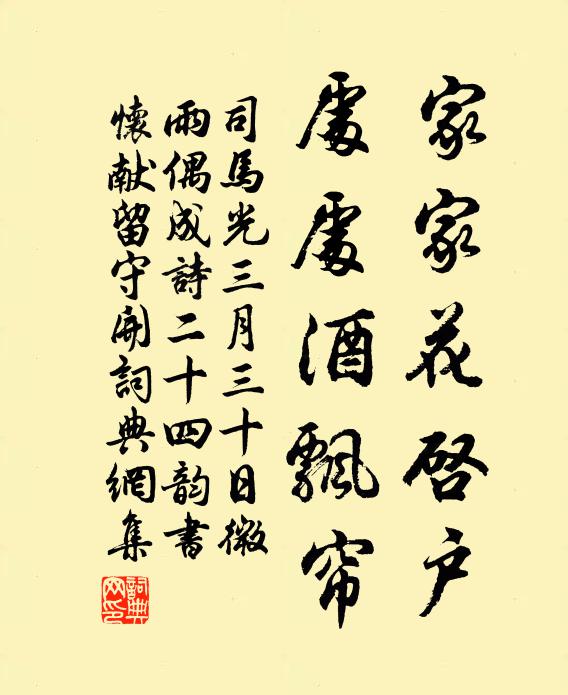 家家花啓戶
處處酒飄帘
司馬光三月三十日微
雨偶成詩二十四韵書
懷献留守開詞典網集
詞典网印